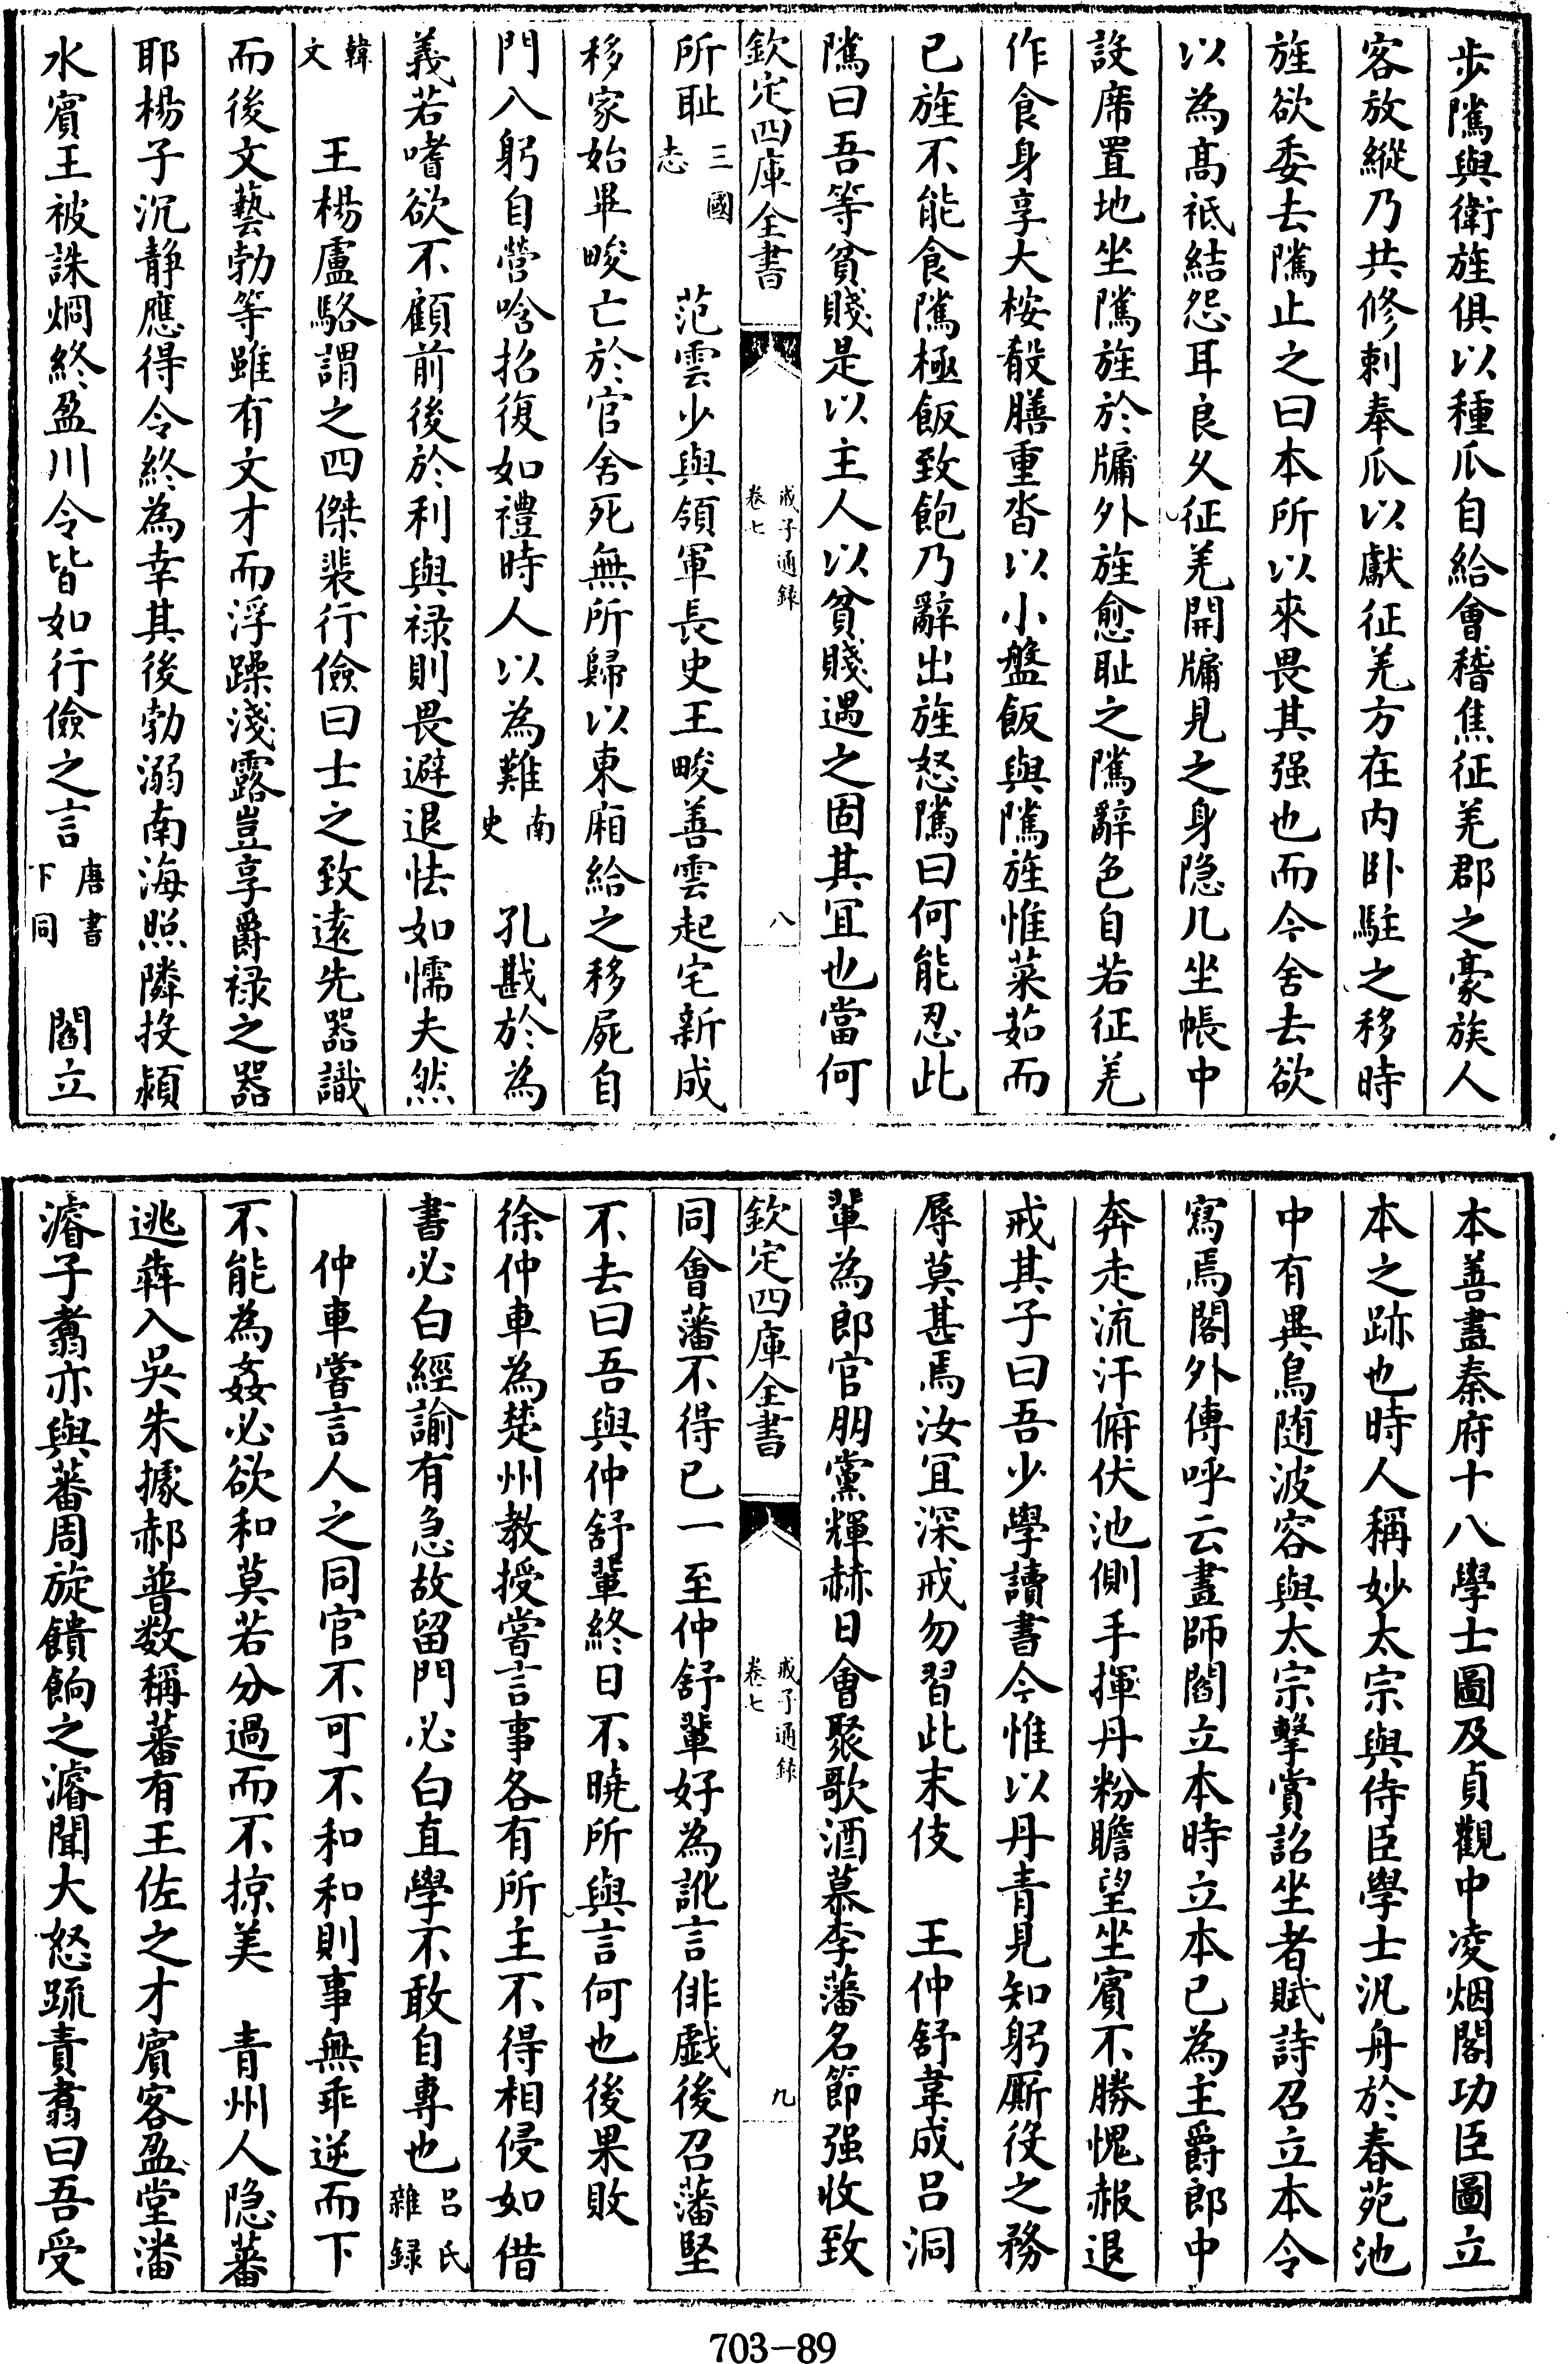 步隲與衛旌俱以種瓜自給會稽焦征羌郡之豪族人
客放縱乃共修刺奉瓜以獻征羌方在内卧駐之移時
旌欲委去隲止之曰本所以來畏其强也而今舍去欲
以為髙祇結怨耳良乆征羌開牗見之身隐几坐帳中
設席置地坐隲旌於牗外旌愈耻之隲辭色自若征羌
作食身享大桉殽膳重沓以小盤飯與隲旌惟菜茹而
已旌不能食隲極飯致飽乃辭出旌怒隲曰何能忍此
隲曰吾等貧賤是以主人以貧賤遇之固其宜也當何
欽定四庫全書 戒子通録 卷七 八
所耻 三國志 范雲少與領軍長史王畯善雲起宅新成
移家始畢畯亡於官舍死無所歸以東廂給之移屍自
門入躬自營唅招復如禮時人以為難 南史 孔戡於為
義若嗜欲不顧前後於利與禄則畏避退怯如懦夫然
韓文 王楊盧駱謂之四傑裴行儉曰士之致逺先器識
而後文藝勃等雖有文才而浮躁淺露豈享爵禄之器
耶楊子沉静應得令終為幸其後勃溺南海照隣投潁
水賓王被誅烱終盈川令皆如行儉之言 唐書下同 閻立
本善畫秦府十八學士圖及貞觀中凌烟閣功臣圖立
本之跡也時人稱妙太宗與侍臣學士汎舟於春苑池
中有異鳥随波容與太宗擊賞詔坐者賦詩召立本令
寫焉閣外傳呼云畫師閻立本時立本已為主爵郎中
奔走流汗俯伏池側手揮丹粉瞻望坐賓不勝愧赧退
戒其子曰吾少學讀書今惟以丹青見知躬厮役之務
辱莫甚焉汝宜深戒勿習此末伎 王仲舒韋成吕洞
輩為郎官朋黨輝赫日會聚歌酒慕李藩名節强收致
欽定四庫全書 戒子通録 卷七 九
同會藩不得已一至仲舒輩好為訛言俳戯後召藩堅
不去曰吾與仲舒輩終日不曉所與言何也後果敗
徐仲車為楚州教授嘗言事各有所主不得相侵如借
書必白經諭有急故留門必白直學不敢自專也 吕氏雜録
仲車嘗言人之同官不可不和和則事無乖逆而下
不能為姦必欲和莫若分過而不掠美 青州人隐蕃
逃犇入吳朱據郝普数稱蕃有王佐之才賓客盈堂潘
濬子翥亦與蕃周旋饋餉之濬聞大怒疏責翥曰吾受
703-89